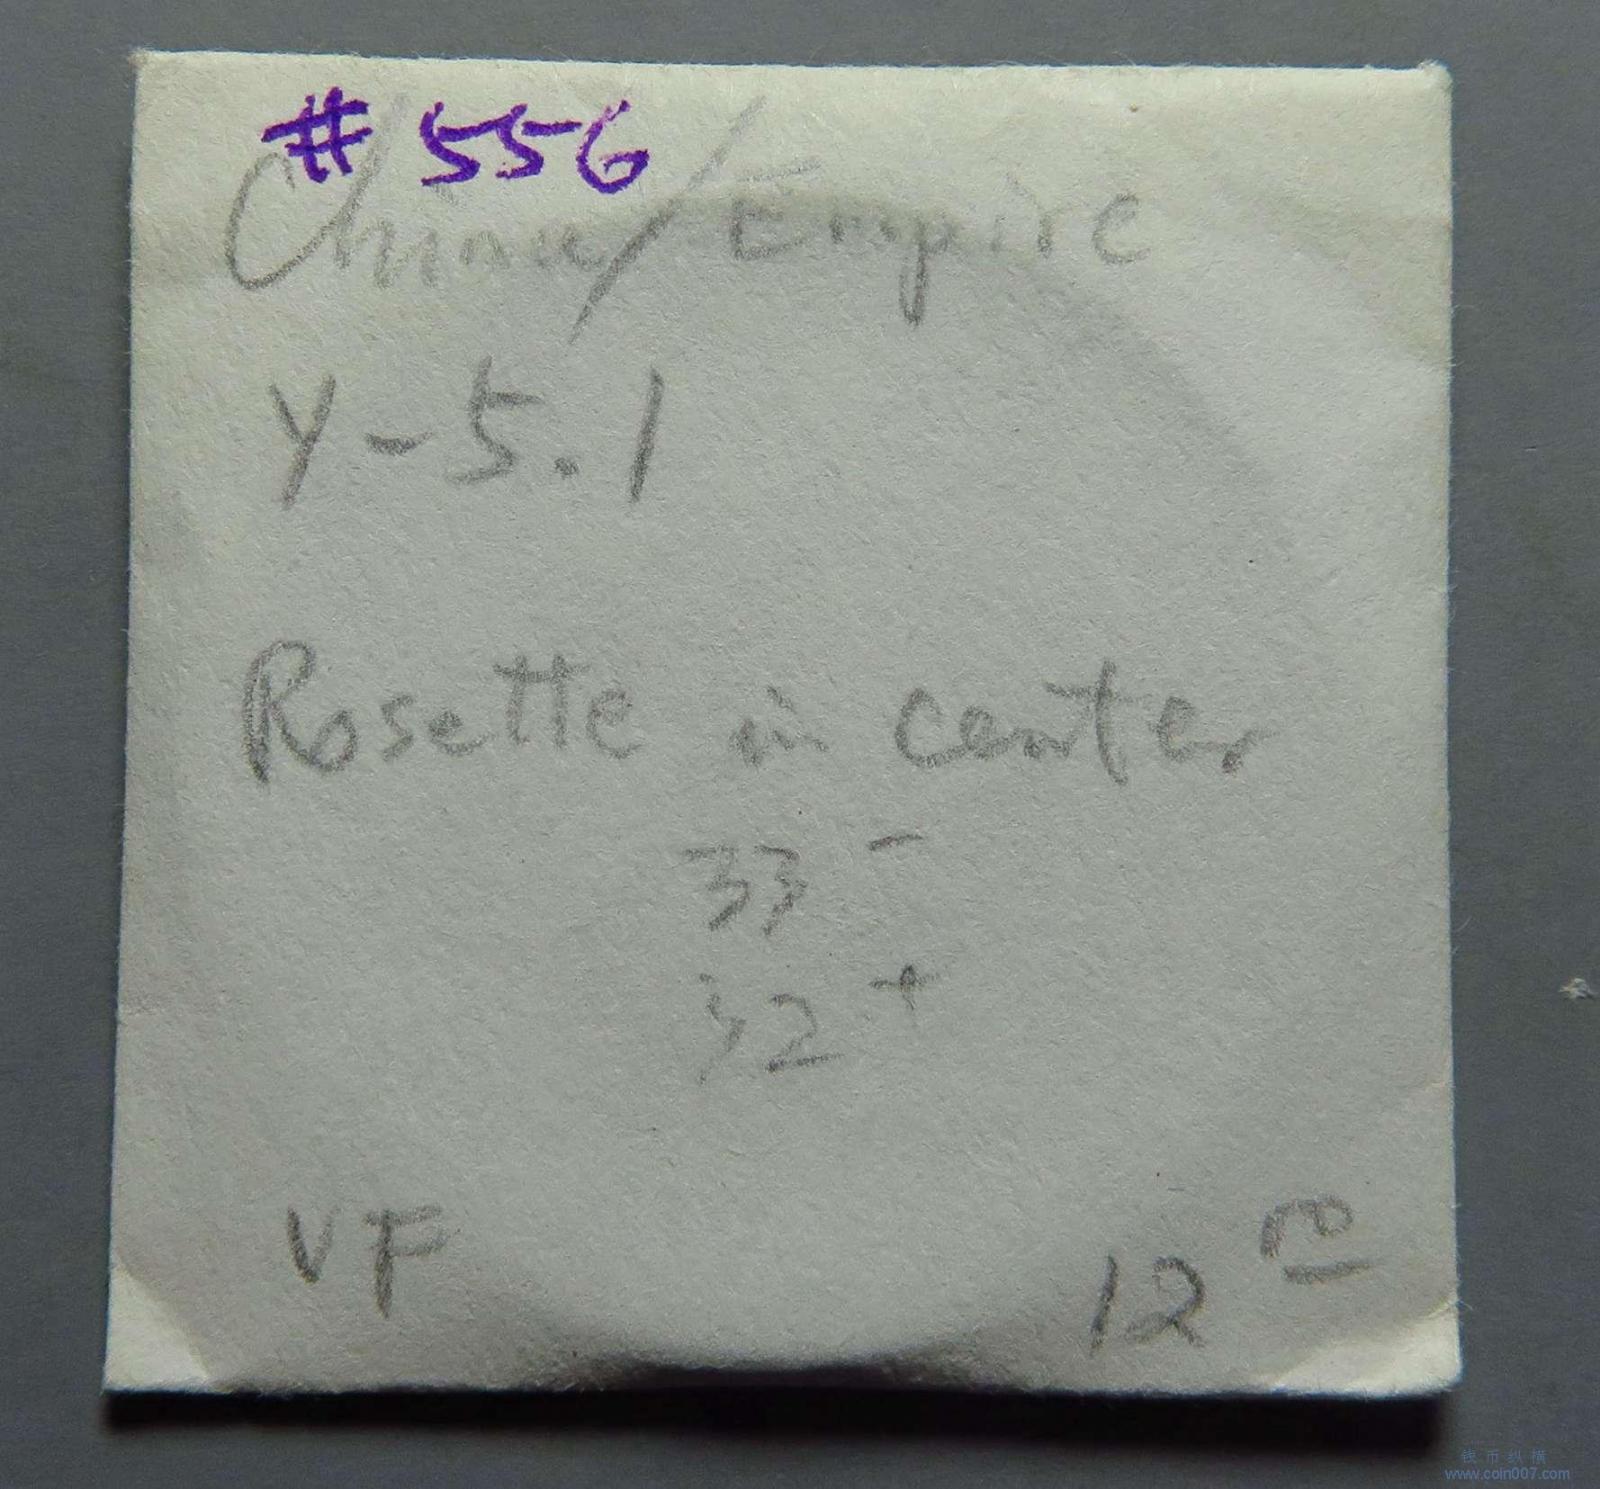 # 556
China/Empire
Y-5.1
Rosette in center
33 -
32 +
VF
12
钱币纵横
www.coin007.com